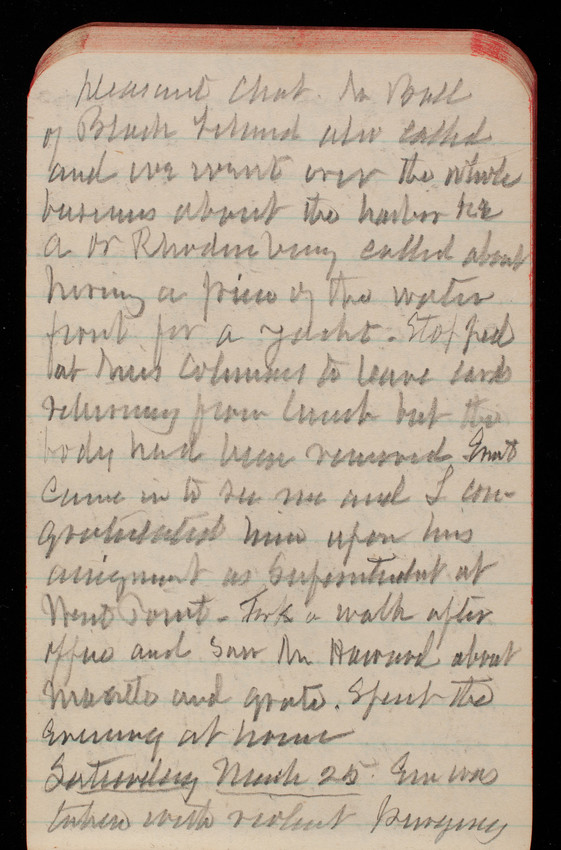 pleasant chat. Mr Ball
of Block Island also called
and we went over the whole
business about the harbor
a Dr called about
hiring a piece of the water
front for a yacht. Stopped
at Colemans to leave cards
returning from lunch but the
body had been removed Ernst
came in to see me and I con-
gratulated him upon his
assignment as Superintendent at
West Point - Took a walk after
office and saw Mr Howard about
mantle and grate. Spent the
evening at home
Saturday March 25. Em was
taken with violent purging